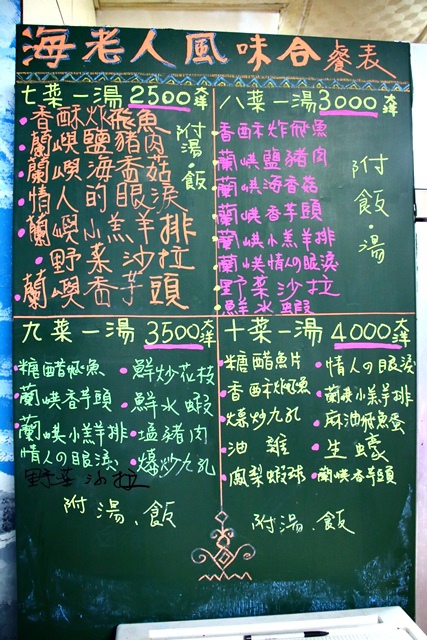 海老人風味合餐表
七菜一湯2500大洋
香酥炸飛魚
蘭嶼鹽豬肉
蘭嶼海香菇
情人的眼淚
蘭嶼小羔羊排
野菜沙拉
蘭嶼香芋頭
附湯·飯
八菜一湯3000大洋
香酥炸飛魚
蘭嶼鹽豬肉
蘭嶼海香菇
蘭嶼香芋頭
蘭嶼小羔羊排
蘭嶼情人の眼淚
野菜沙拉
鮮水蝦
附飯·湯
九菜一湯3500大洋
糖醋飛魚
蘭嶼香芋頭
蘭嶼小羔羊排
情人の眼淚
野菜沙拉
鮮炒花枝
鮮水蝦
塩豬肉
爆炒九孔
附湯、飯
十菜一湯4000大洋
糖醋魚片
香酥炸飛魚
爆炒九孔
油雞
鳳梨蝦球
情人の眼淚
蘭嶼小羔羊排
麻油飛魚蛋
生蠔
蘭嶼香芋頭
附湯、飯